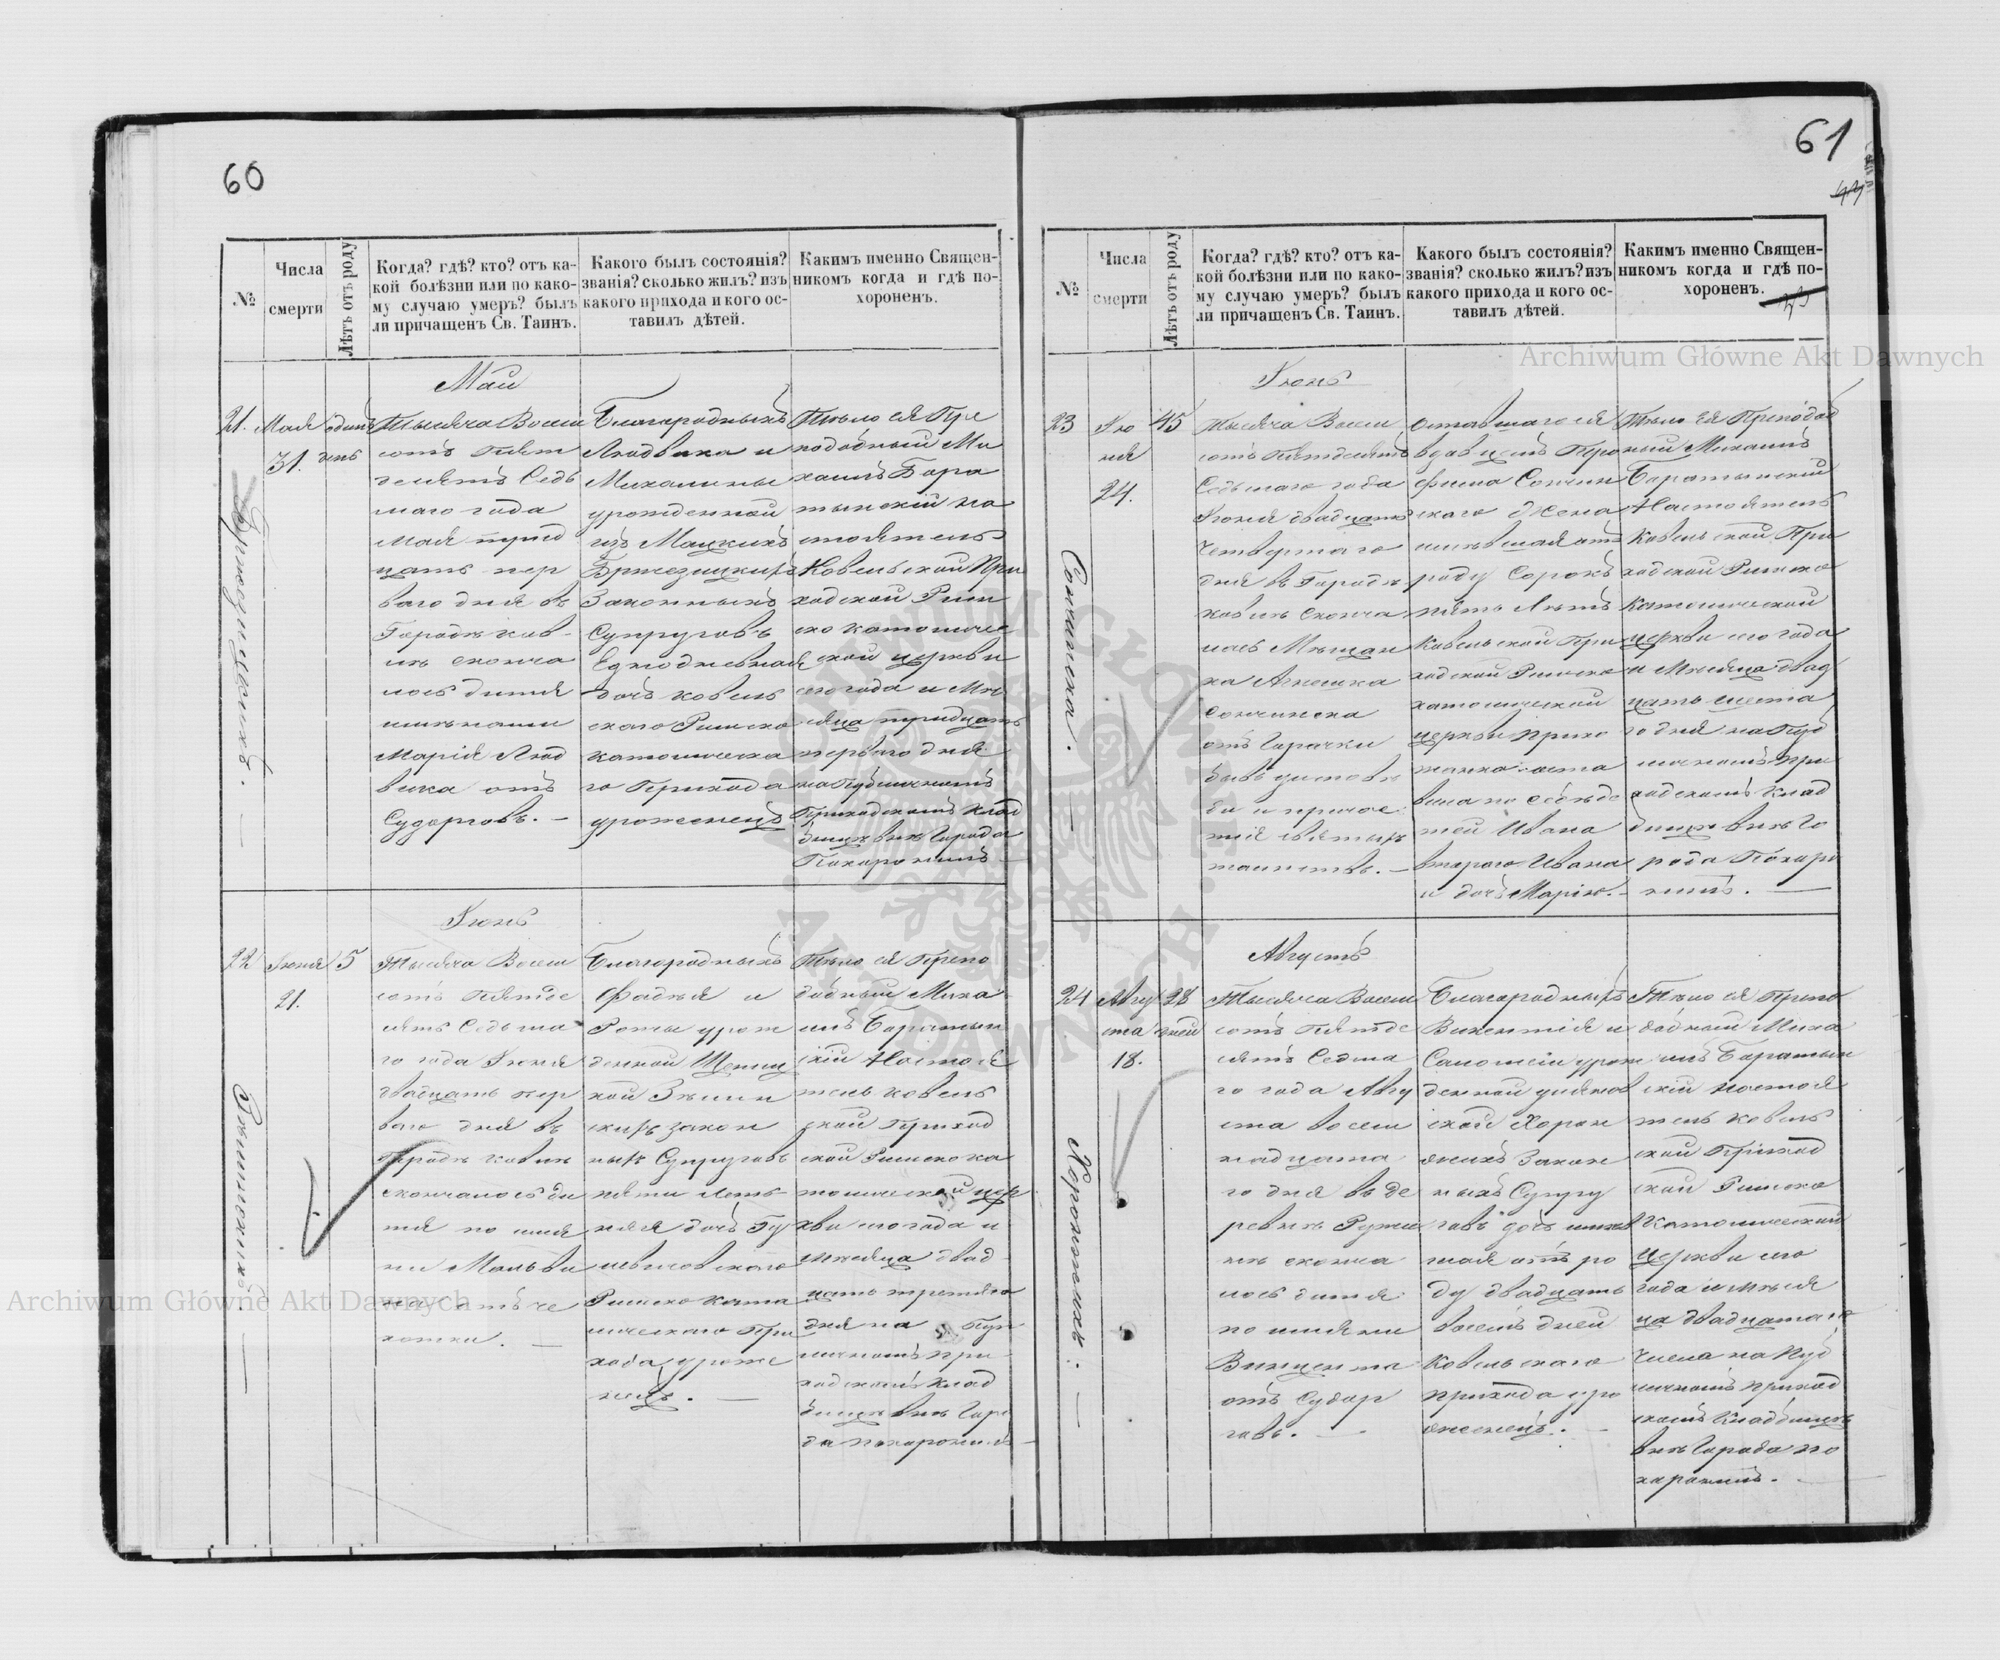 60
№
Числа
смерти
Лѣтъ отъ роду
Когда? гдѣ? кто? отъ ка-
кой болѣзни или по како-
му случаю умеръ? былъ
ли причащенъ Св. Таинъ.
Какого былъ состоянія?
званія? сколько жилъ? изъ
какого прихода и кого ос-
тавилъ дѣтей.
Какимъ именно Священ-
никомъ когда и гдѣ по-
хороненъ.
Май
21.
Мая
31.
одинъ
день
Тысяча Восем
сотъ Пять
десятъ Седь
маго года
Мая трид
цать пер
ваго дня въ
Городѣ Ков-
лѣ сконча
лось дитя
имѣнами
Марія Люд
вика отъ
Судоргов. —
Благородныхъ
Людвика и
Михалины
урожденной
изъ Мацкихъ
Законныхъ
Супруговъ
Еднодневная
дочь Ковель
скаго Римско
католическа
го Прихода
уроженецъ
Тѣло ея Пре
подобный Ми
хаилъ Бора
тынскій На
стоятель
Ковельской При
ходской Рим
ско католиче
ской церкви
сего года и Мѣ
сяца тридцать
перваго дня
на Публичномъ
Приходскомъ Клад
бищѣ внѣ Города
Похоронилъ
Іюнь
22
Іюня
21.
5
Тысяча Восем
сотъ Пятьде
сятъ Седьма
го года Іюня
двадцать пер
ваго дня въ
Городѣ Ковлѣ
скончалось ди
тя по имя
ни Мальви
на отъ че
хотки. —
Благородныхъ
Фадея и
Розы урож
денной
законныхъ Супруговъ
пяти лѣт-
няя дочь
Римско Като
лическаго При
хода уроже
нецъ. —
Тѣло ея Препо
добный Миха
илъ Боратын
скій Настоя
тель Ковель
ской Приход
ской Римско ка
толической цер
кви сего года и
мѣсяца двад
цать третяго
дня на Пуб
личномъ при
ходскомъ клад
бищѣ внѣ Горо
да похоронилъ —
61
№
Числа
смерти
Лѣтъ отъ роду
Когда? гдѣ? кто? отъ ка-
кой болѣзни или по како-
му случаю умеръ? былъ
ли причащенъ Св. Таинъ.
Какого былъ состоянія?
званія? сколько жилъ? изъ
какого прихода и кого ос-
тавилъ дѣтей.
Какимъ именно Священ-
никомъ когда и гдѣ по-
хороненъ.
Archiwum Główne Akt Dawnych
Іюнь
23
Ію
ня
24.
45
Сончинска. —
Тысяча Восем
сотъ Пятьдесятъ
Седьмаго года
Іюня двадцать
Четвертаго
дня въ Городѣ
Ковлѣ сконча
лась Мѣщан
ка Агнешка
Сончинска
отъ Горячки
бывъ
и причас
тія святыхъ
таинствъ. —
оставшагося
вдовцемъ Про
фима Сончин
скаго Жена
имѣвшая отъ
роду Сорокъ
пять Лѣтъ
Ковельской При
ходской Римско
католической
церкви Прихо
жанка оста
вила по себѣ дѣ
тей Ивана
втораго Ивана
и дочь Марію. —
Тѣло Ея Преподоб
ный Михаилъ
Боратынскій
Настоятель
Ковельской При
ходской Римско
Католической
церкви сего года
и Мѣсяца двад
цать шеста
го дня на Пуб
личномъ При
ходскомъ Клад
бищѣ внѣ Го
рода Похоро
нилъ. —
Августъ
24
Авгу
ста
18.
28
дней
Тысяча Восем
сотъ Пятьде
сятъ Седма
го года Авгу
ста восем
надцата
го дня въ де
ревнѣ
сконча
лось дитя
по имяни
Винцента
отъ Судор
говъ. —
Благородныхъ
Викентія и
Саломеи урож
денной
Закон
ныхъ Супру
говъ дочь имѣв
шая отъ ро
ду двадцать
восемь дней
Ковельскаго
прихода уро
женецъ. —
Тѣло ея Препо
добный Миха
илъ Боратын
скій Настоя
тель Ковель
ской Приход
ской Римско
Католической
Церкви сего
года и мѣся
ца двадцатаго
Числа на Пуб
личномъ приход
скомъ Кладбищѣ
внѣ Города по
хоронилъ. —
Archiwum Główne Akt Dawnych